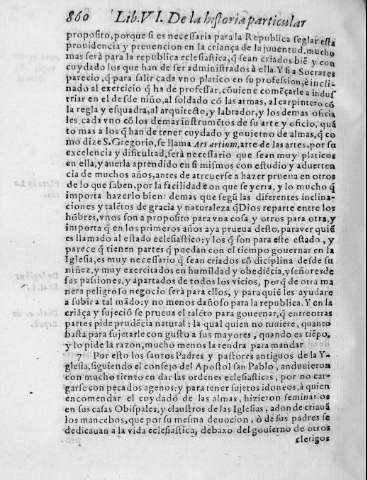 860 Lib. VI. De la historia particular
proposito, porque si es necessaria para la Republica seglar esta
prouidencia y preuencion en la criança de la juuentud, mucho
mas serà para la republica eclesiastica, q̃ sean criados biẽ y con
cuydado los que han de ser administrados à ella. Y si à Socrates
parecio, q̃ para salir cada vno platico en su profession, è incli-
nado al exercicio q̃ ha de professar, cõuiene comẽçarle a indus
triar en el desde niño, al soldado cõ las armas, al carpintero cõ
la regla y esquadra, al arquitecto, y labrador, y los demas oficia
les cada vno cõ los demas instrumẽtos de su arte y oficio, quã
to mas a los q̃ han de tener cuydado y gouierno de almas, q̃ co
mo dize S. Gregorio, se llama Ars artium, arte de las artes, por su
excelencia y dificultad, serà necessario que sean muy platicos
en ella, y auerla aprendido en si mismos con estudio y aduerten
cia de muchos años, antes de atreuerse a hazer prueua en otros
de lo que saben, por la facilidad con que se yerra, y lo mucho q̃
importa hazerlo bien: demas que segũ las diferentes inclina-
ciones y talẽtos de gracia y naturaleza q̃ Dios reparte entre los
hõbres, vnos son a proposito para vna cosa, y otros para otra, y
importa q̃ en los primeros años aya prueua desto, para ver quiẽ
es llamado al estado eclesiastico: y los q̃ son para este estado, y
parece q̃ tienen partes q̃ puedan con el tiempo gouernar en la
Iglesia, es muy necessario q̃ sean criados cõ diciplina desde su
niñez, y muy exercitados en humildad y obediẽcia, y señores de
sus passiones, y apartados de todos los vicios, porq̃ de otra ma
nera peligroso negocio serà para ellos, y para quiẽ les ayudare
a subir a tal mãdo: y no menos dañoso para la republica. Y en la
criãça y sujeciõ se prueua el talẽto para gouernar, q̃ entre otras
partes pide prudẽcia natural: la qual quien no tuuiere, quanto
basta para sujetarle con gusto a sus mayores, quando es tiẽpo,
y lo pide la razon, mucho menos la tendra para mandar
7 Por esto los santos Padres y pastores antiguos de la Y-
glesia, siguiendo el consejo del Apostol san Pablo, anduuieron
con mucho tiento en dar las ordenes eclesiasticas, por no car-
garse con pecados agenos; y para tener sujetos idoneos, à quien
encomendar el cuydado de las almas, hizieron seminarios
en sus casas Obispales, y claustros de las Iglesias, adonde criauã
los mancebos, que por su mesma deuocion, ò de sus padres se
dedicauan a la vida eclesiastica, debaxo del gouierno de otros
clerigos